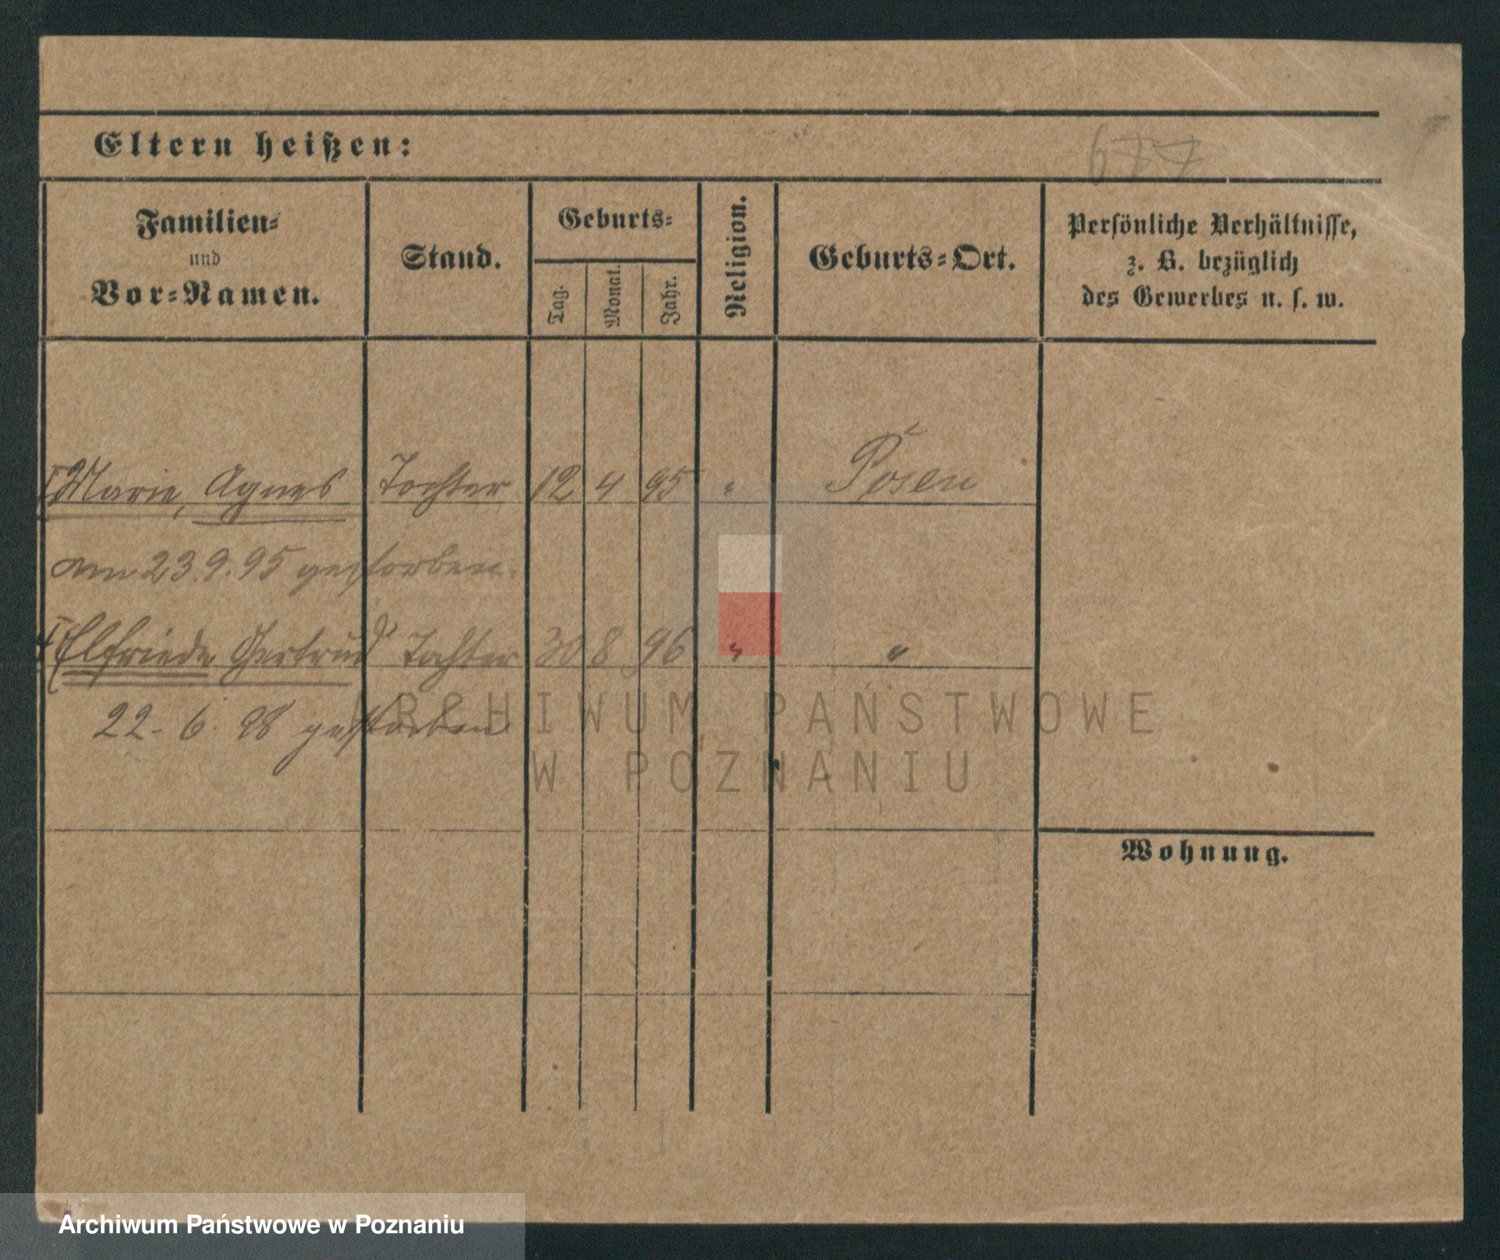 Eltern heißen:
677
Familien-
und
Vor-Namen.
Stand.
Geburts-
Tag.
Monat.
Jahr.
Religion.
Geburts-Ort.
Persönliche Verhältnisse,
z. B. bezüglich
des Gewerbes u. s. w.
Marie, Agnes Tochter 12 4 95 " Posen
am 23.9.95 gestorben.
Elfriede Gertrud Tochter 30 8 96 " "
22. 6. 98 gestorben.
ARCHIWUM PAŃSTWOWE
W POZNANIU
Wohnung.
Archiwum Państwowe w Poznaniu